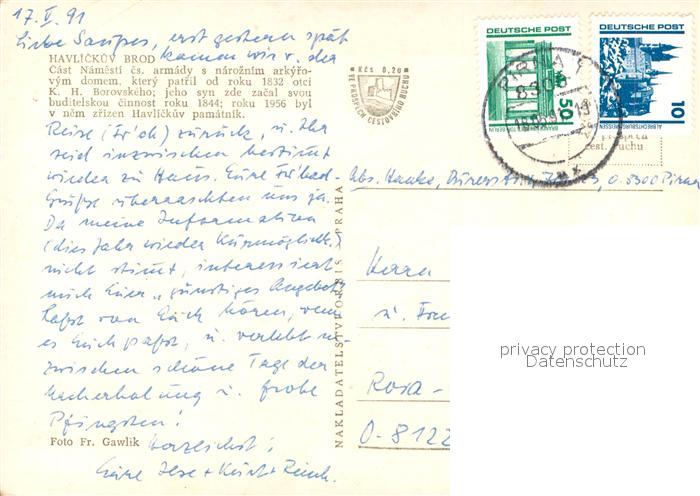 17. V. 91
erst gestern spät
kamen wir v. der
HAVLÍČKŮV BROD
Část Náměstí čs. armády s nárožním arkýřo-
vým domem, který patřil od roku 1832 otci
K. H. Borovského; jeho syn zde začal svou
buditelskou činnost roku 1844; roku 1956 byl
v něm zřízen Havlíčkův památník.
Kčs 0,20
VE PROSPĚCH CESTOVNÍHO RUCHU
DEUTSCHE POST
50
DEUTSCHE POST
10
PIRNA 1
8300
cest. ruchu
Reise zurück, u. Ihr
seid inzwischen bestimmt
wieder zu Haus. Eure
Grüße überraschten uns ja.
Da meine Information
(dies Jahr wieder Kurmöglichk.)
nicht stimmt, interessiert
mich Euer „günstiges Angebot“
Laßt von Euch hören, wenn
es Euch paßt, u. verlebt in-
zwischen schöne Tage der
Nacherholung u. frohe
Pfingsten!
Herzlichst!
Eure Ilse + Kurt +
Foto Fr. Gawlik
NAKLADATELSTVÍ ORBIS PRAHA
Abs. Hanke, 0-8300 Pirna
Herrn
u.
Rosa-
O-8122
privacy protection
Datenschutz